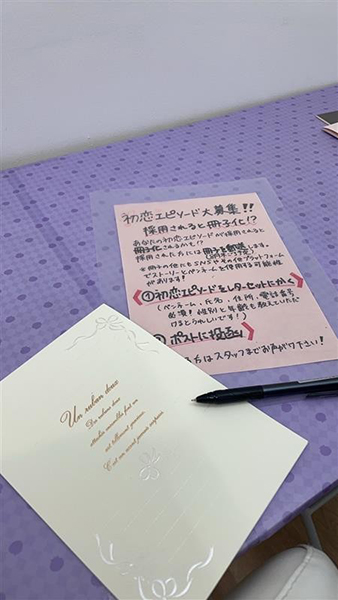 初恋エピソード大募集!!
採用されると冊子化!?
あなたの初恋エピソードが採用されると
冊子化されるかも!?
採用された方には冊子を郵送します。
*冊子の他にもSNSやその他プラットフォーム
でストーリーとペンネームを使用する可能性
があります!
①初恋エピソードをレターセットにかく
(ペンネーム・氏名・住所・電話番号
必須! 性別と年齢も教えていただ
けるとうれしいです!)
ポストに投函
方はスタッフまでお声がけ下さい!
Un ruban doux
Des ruban doux
attachés ensemble fait un
est tellement
C'est un